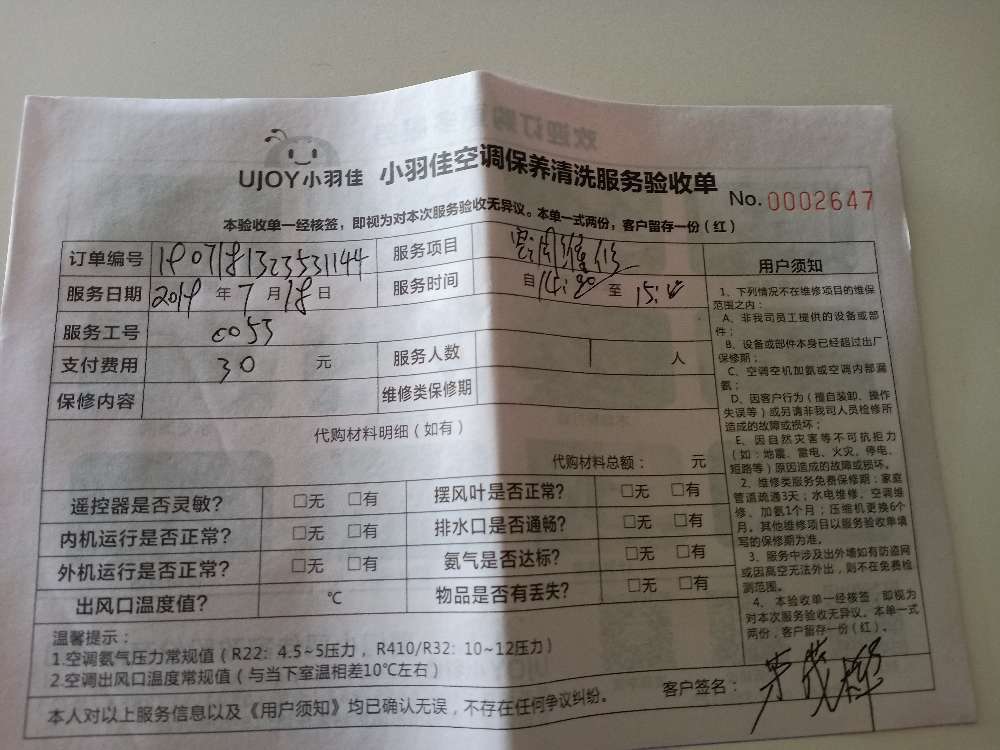 UJOY小羽佳 小羽佳空调保养清洗服务验收单
No. 0002647
本验收单一经核签，即视为对本次服务验收无异议。本单一式两份，客户留存一份（红）
订单编号 19071813235331144 服务项目
服务日期 2019 年 7 月 18 日 服务时间 自 14:20 至
服务工号 0053
支付费用 30 元 服务人数 1 人
保修内容 维修类保修期
代购材料明细（如有）
代购材料总额： 元
遥控器是否灵敏? □无 □有 摆风叶是否正常? □无 □有
内机运行是否正常? □无 □有 排水口是否通畅? □无 □有
外机运行是否正常? □无 □有 氨气是否达标? □无 □有
出风口温度值? ℃ 物品是否有丢失? □无 □有
温馨提示：
1.空调氨气压力常规值（R22：4.5~5压力，R410/R32：10~12压力）
2.空调出风口温度常规值（与当下室温相差10℃左右）
本人对以上服务信息以及《用户须知》均已确认无误，不存在任何争议纠纷。
客户签名：
用户须知
1、下列情况不在维修项目的维保
范围之内：
A、非我司员工提供的设备或部
件；
B、设备或部件本身已经超过出厂
保修期；
C、空调空机加氨或空调内部漏
氨；
D、因客户行为（擅自装卸、操作
失误等）或另请非我司人员检修所
造成的故障或损坏；
E、因自然灾害等不可抗拒力
（如：地震、雷电、火灾、停电、
短路等）原因造成的故障或损坏。
2、维修类服务免费保修期：家庭
管道疏通3天；水电维修、空调维
修、加氨1个月；压缩机更换6个
月。其他维修项目以服务验收单填
写的保修期为准。
3、服务中涉及出外墙如有防盗网
或因高空无法外出，则不在免费检
测范围。
4、本验收单一经核签，即视为
对本次服务验收无异议。本单一式
两份，客户留存一份（红）。